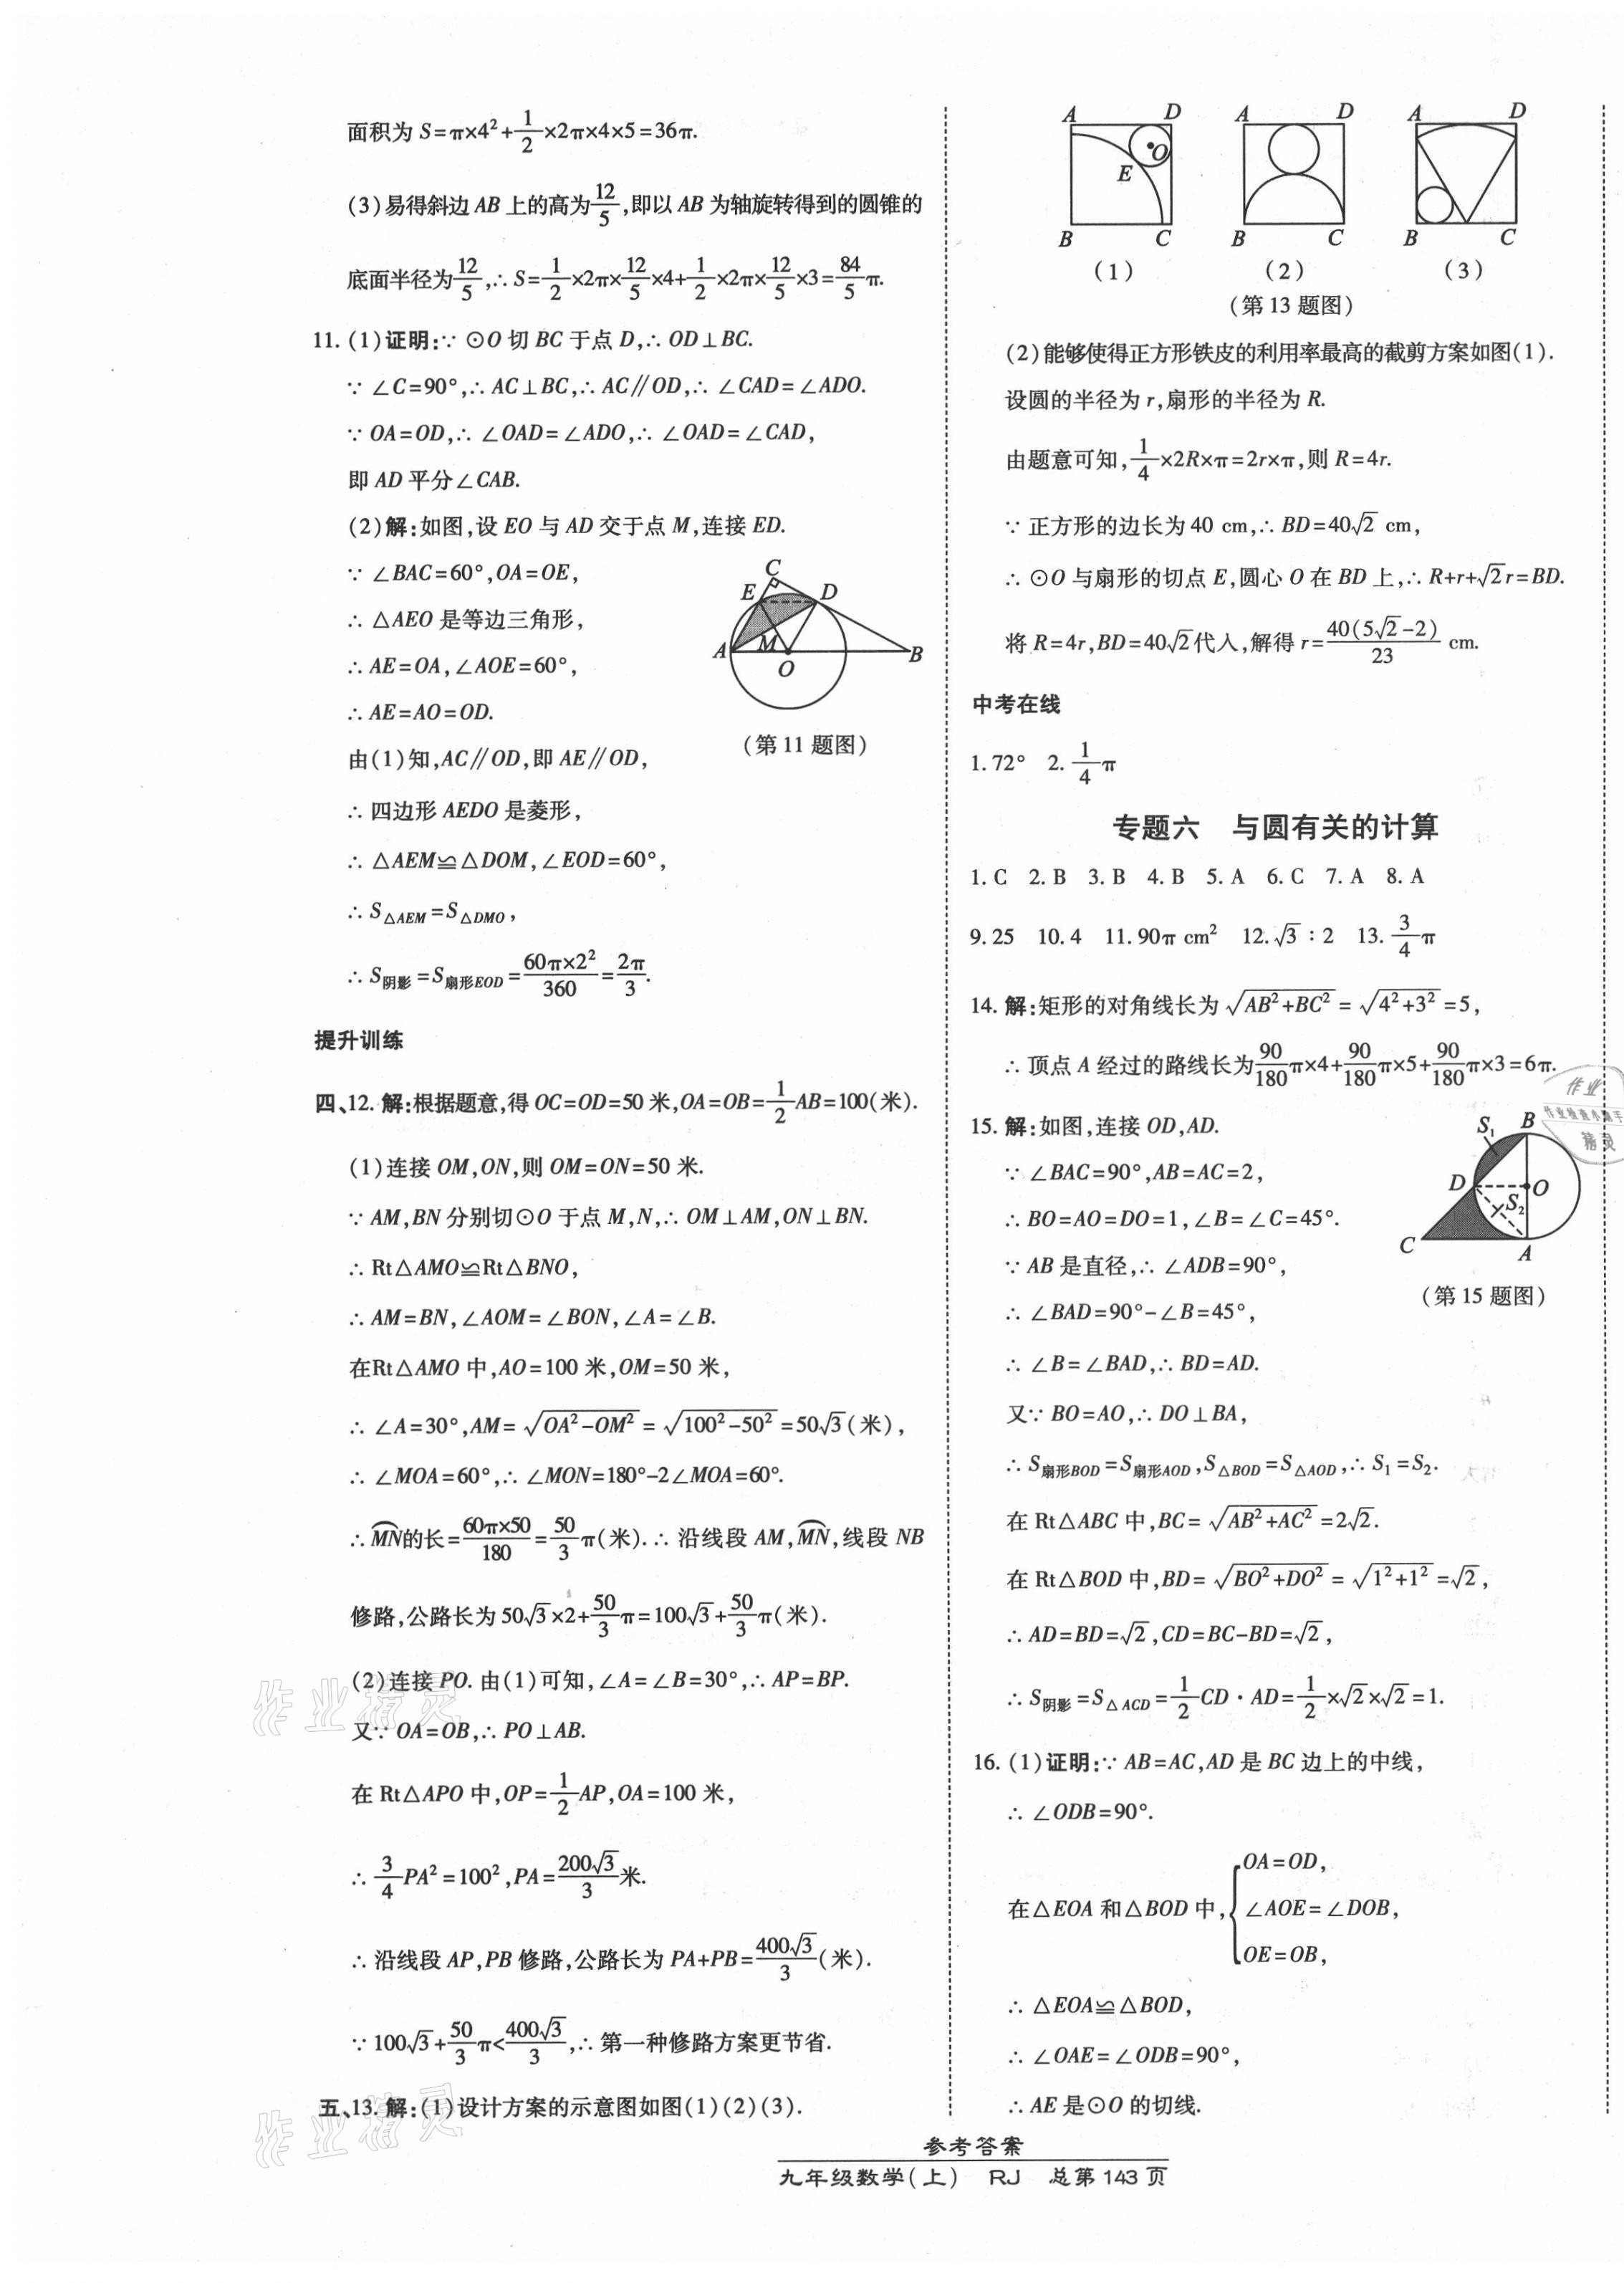 面积为 S=π×4²+1/2×2π×4×5=36π.
(3)易得斜边 AB 上的高为12/5,即以 AB 为轴旋转得到的圆锥的
底面半径为12/5,∴ S=1/2×2π×12/5×4+1/2×2π×12/5×3=84/5π.
11. (1)证明:∵ ⊙O 切 BC 于点 D,∴ OD⊥BC.
∵ ∠C=90°,∴ AC⊥BC,∴ AC∥OD,∴ ∠CAD=∠ADO.
∵ OA=OD,∴ ∠OAD=∠ADO,∴ ∠OAD=∠CAD,
即 AD 平分∠CAB.
(2)解:如图,设 EO 与 AD 交于点 M,连接 ED.
∵ ∠BAC=60°,OA=OE,
∴ △AEO 是等边三角形,
∴ AE=OA,∠AOE=60°,
∴ AE=AO=OD.
由(1)知,AC∥OD,即 AE∥OD,
∴ 四边形 AEDO 是菱形,
∴ △AEM≌△DOM,∠EOD=60°,
∴ S△AEM=S△DMO,
∴ S阴影=S扇形EOD=60π×2²/360=2π/3.
C
E
D
A
M
O
B
(第 11 题图)
提升训练
四、12. 解:根据题意,得 OC=OD=50 米,OA=OB=1/2AB=100(米).
(1)连接 OM,ON,则 OM=ON=50 米.
∵ AM,BN 分别切⊙O 于点 M,N,∴ OM⊥AM,ON⊥BN.
∴ Rt△AMO≌Rt△BNO,
∴ AM=BN,∠AOM=∠BON,∠A=∠B.
在Rt△AMO 中,AO=100 米,OM=50 米,
∴ ∠A=30°,AM=√(OA²-OM²)=√(100²-50²)=50√3(米),
∴ ∠MOA=60°,∴ ∠MON=180°-2∠MOA=60°.
∴ M͡N的长=60π×50/180=50/3π(米).∴ 沿线段 AM,M͡N,线段 NB
修路,公路长为 50√3×2+50/3π=100√3+50/3π(米).
(2)连接 PO. 由(1)可知,∠A=∠B=30°,∴ AP=BP.
又∵ OA=OB,∴ PO⊥AB.
在 Rt△APO 中,OP=1/2AP,OA=100 米,
∴ 3/4PA²=100²,PA=200√3/3米.
∴ 沿线段 AP,PB 修路,公路长为 PA+PB=400√3/3(米).
∵ 100√3+50/3π<400√3/3,∴ 第一种修路方案更节省.
五、13. 解:(1)设计方案的示意图如图(1)(2)(3).
A D O E B C
A D B C
A D B C
(1) (2) (3)
(第 13 题图)
(2)能够使得正方形铁皮的利用率最高的截剪方案如图(1).
设圆的半径为 r,扇形的半径为 R.
由题意可知,1/4×2R×π=2r×π,则 R=4r.
∵ 正方形的边长为 40 cm,∴ BD=40√2 cm,
∴ ⊙O 与扇形的切点 E,圆心 O 在 BD 上,∴ R+r+√2r=BD.
将 R=4r,BD=40√2代入,解得 r=40(5√2-2)/23 cm.
中考在线
1. 72° 2. 1/4π
专题六 与圆有关的计算
1. C 2. B 3. B 4. B 5. A 6. C 7. A 8. A
9. 25 10. 4 11. 90π cm² 12. √3∶2 13. 3/4π
14. 解:矩形的对角线长为√(AB²+BC²)=√(4²+3²)=5,
∴ 顶点 A 经过的路线长为90/180π×4+90/180π×5+90/180π×3=6π.
15. 解:如图,连接 OD,AD.
∵ ∠BAC=90°,AB=AC=2,
∴ BO=AO=DO=1,∠B=∠C=45°.
∵ AB 是直径,∴ ∠ADB=90°,
∴ ∠BAD=90°-∠B=45°,
∴ ∠B=∠BAD,∴ BD=AD.
又∵ BO=AO,∴ DO⊥BA,
∴ S扇形BOD=S扇形AOD,S△BOD=S△AOD,∴ S₁=S₂.
在 Rt△ABC 中,BC=√(AB²+AC²)=2√2.
在 Rt△BOD 中,BD=√(BO²+DO²)=√(1²+1²)=√2,
∴ AD=BD=√2,CD=BC-BD=√2,
∴ S阴影=S△ACD=1/2CD·AD=1/2×√2×√2=1.
S₁
B
D
O
S₂
C
A
(第 15 题图)
16. (1)证明:∵ AB=AC,AD 是 BC 边上的中线,
∴ ∠ODB=90°.
在△EOA 和△BOD 中,{OA=OD,
∠AOE=∠DOB,
OE=OB,
∴ △EOA≌△BOD,
∴ ∠OAE=∠ODB=90°,
∴ AE 是⊙O 的切线.
参考答案
九年级数学(上) RJ 总第 143 页
作业精灵
作业精灵
作业
作业检查小助手
精灵